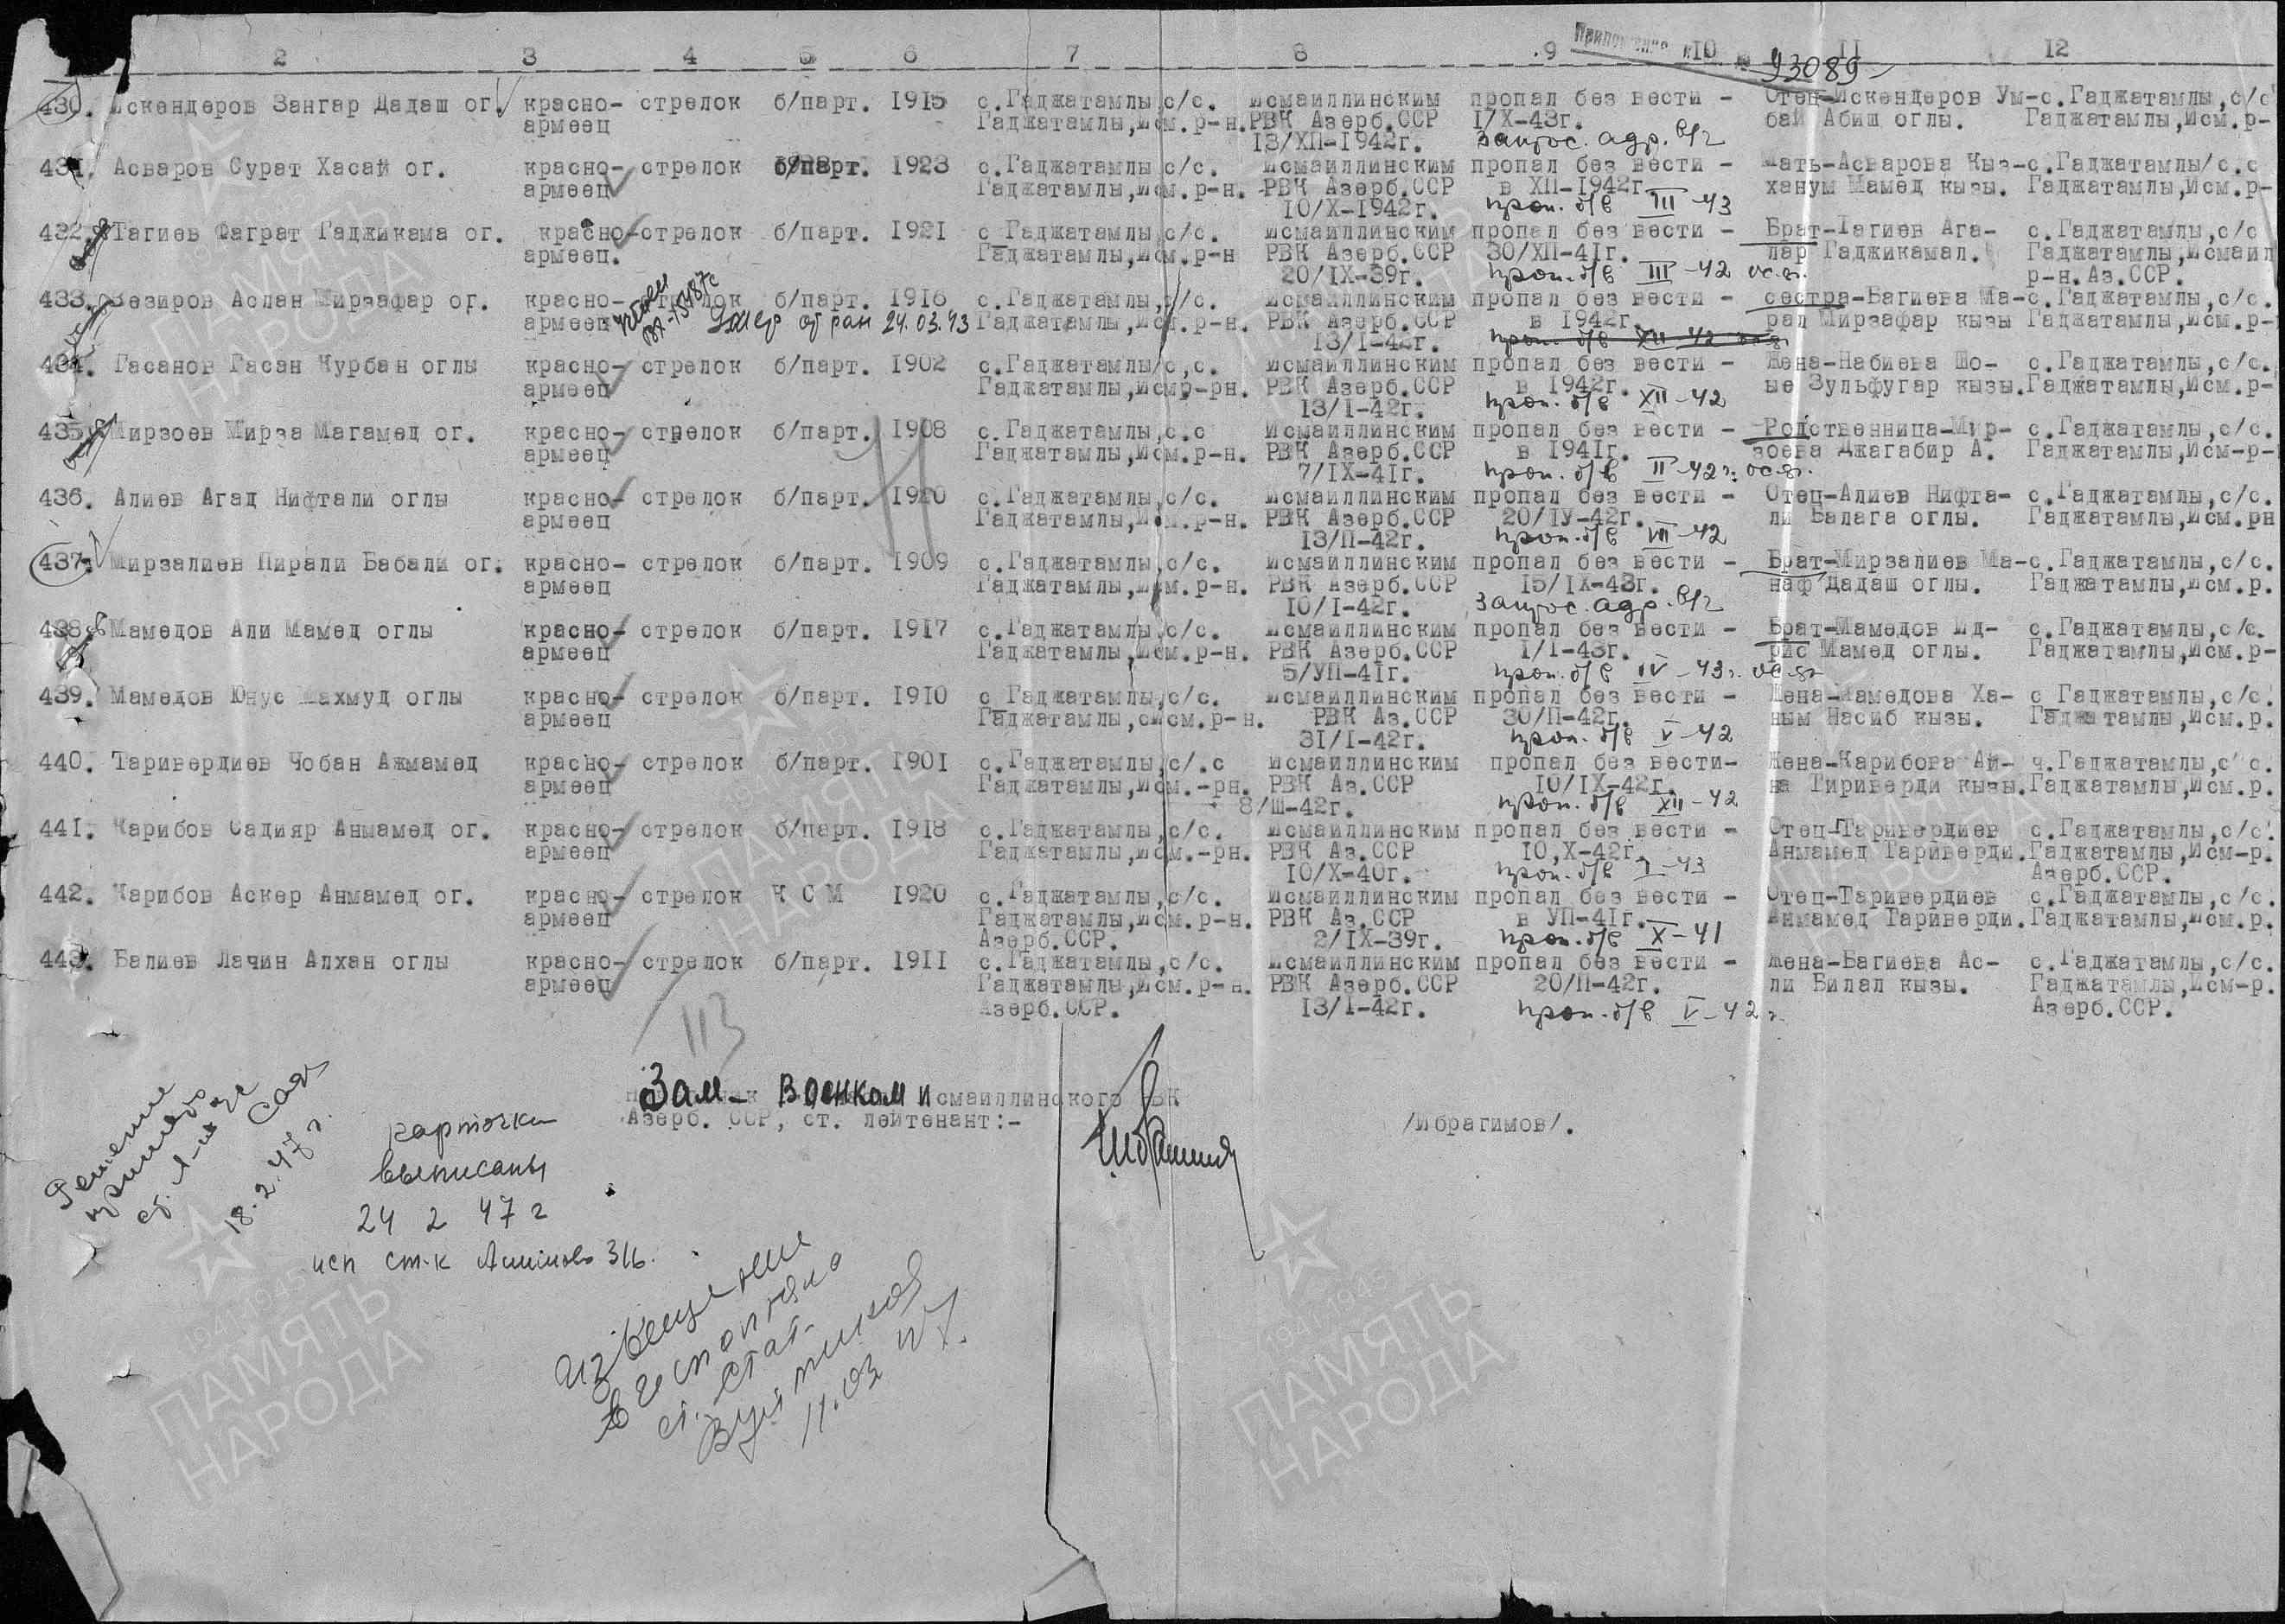 2 3 4 5 6 7 8 9 10 11 12
93089
430. Искендеров Зангар Дадаш ог. красно- стрелок б/парт. 1915 с.Гаджатамлы,с/с. Исмаиллинским пропал без вести - Отец-Искендеров Ум- с.Гаджатамлы,с/с
армеец Гаджатамлы,Исм.р-н. РВК Азерб.ССР 1/X-43г. бай Абиш оглы. Гаджатамлы,Исм.р-
13/ХП-1942г. Запрос. адр.
431. Асваров Сурат Хасай ог. красно- стрелок б/парт. 1923 с.Гаджатамлы,с/с. Исмаиллинским пропал без вести - Мать-Асварова Кыз- с.Гаджатамлы/с.с
армеец Гаджатамлы,Исм.р-н. РВК Азерб.ССР в ХП-1942г. ханум Мамед кызы. Гаджатамлы,Исм.р-
10/X-1942г. проп. б/в III-43
432. Тагиев Фаграт Гаджикама ог. красно- стрелок б/парт. 1921 с Гаджатамлы,с/с. Исмаиллинским пропал без вести - Брат-Тагиев Ага- с.Гаджатамлы,с/с
армеец. Гаджатамлы,Исм.р-н РВК Азерб.ССР 30/ХП-41г. лар Гаджикамал. Гаджатамлы,Исмаил
20/IX-39г. проп. б/в III-42 р-н.Аз.ССР.
433. Везиров Аслан Мирзафар ог. красно- стрелок б/парт. 1916 с.Гаджатамлы,с/с. Исмаиллинским пропал без вести - сестра-Багиева Ма- с.Гаджатамлы,с/с.
армеец Умер от ран 24.03.43 Гаджатамлы,Исм.р-н. РВК Азерб.ССР в 1942г. рал Мирзафар кызы Гаджатамлы,Исм.р-
13/I-42г. проп. б/в XII-42
434. Гасанов Гасан Курбан оглы красно- стрелок б/парт. 1902 с.Гаджатамлы/с,с. Исмаиллинским пропал без вести - Жена-Набиева Шо- с.Гаджатамлы,с/с.
армеец Гаджатамлы,Исмр-рн. РВК Азерб.ССР в 1942г. ые Зульфугар кызы. Гаджатамлы,Исм.р-
13/I-42г. проп. б/в XII-42
435. Мирзоев Мирза Магамед ог. красно- стрелок б/парт. 1908 с.Гаджатамлы,с.с Исмаиллинским пропал без вести - Родственница-Мир- с.Гаджатамлы,с/с.
армеец Гаджатамлы,Исм.р-н. РВК Азерб.ССР в 1941г. зоева Джагабир А. Гаджатамлы,Исм-р-
7/IX-41г. проп. б/в II-42г.
436. Алиев Агад Нифтали оглы красно- стрелок б/парт. 1920 с.Гаджатамлы,с/с. Исмаиллинским пропал без вести - Отец-Алиев Нифта- с.Гаджатамлы,с/с.
армеец Гаджатамлы,Исм.р-н. РВК Азерб.ССР 20/IУ-42г. ли Балага оглы. Гаджатамлы,Исм.рн
13/П-42г. проп. б/в VII-42
437. Мирзалиев Пирали Бабали ог. красно- стрелок б/парт. 1909 с.Гаджатамлы,с/с. Исмаиллинским пропал без вести - Брат-Мирзалиев Ма- с.Гаджатамлы,с/с.
армеец Гаджатамлы,Исм.р-н. РВК Азерб.ССР 15/IX-43г. наф Дадаш оглы. Гаджатамлы,Исм.р.
10/I-42г. Запрос. адр.
438. Мамедов Али Мамед оглы красно- стрелок б/парт. 1917 с.Гаджатамлы,с/с. Исмаиллинским пропал без вести - Брат-Мамедов Ид- с.Гаджатамлы,с/с.
армеец Гаджатамлы,Исм.р-н. РВК Азерб.ССР 1/I-43г. рис Мамед оглы. Гаджатамлы,Исм.р-
5/УП-41г. проп. б/в IV-43г.
439. Мамедов Юнус Махмуд оглы красно- стрелок б/парт. 1910 с Гаджатамлы,с/с. Исмаиллинским пропал без вести - Жена-Мамедова Ха- с Гаджатамлы,с/с.
армеец Гаджатамлы,сИсм.р-н. РВК Аз.ССР 30/П-42г. ным Насиб кызы. Гаджатамлы,Исм.р.
31/I-42г. проп. б/в V-42
440. Таривердиев Чобан Ажмамед красно- стрелок б/парт. 1901 с.Гаджатамлы,с/.с Исмаиллинским пропал без вести- Жена-Карибова Ай- ч.Гаджатамлы,с/с.
армеец Гаджатамлы,Исм.-рн. РВК Аз.ССР 10/IX-42г. на Тириверди кызы. Гаджатамлы,Исм.р.
8/Ш-42г. проп. б/в XII-42
441. Карибов Садияр Анмамед ог. красно- стрелок б/парт. 1918 с.Гаджатамлы,с/с. Исмаиллинским пропал без вести - Отец-Таривердиев с.Гаджатамлы,с/с.
армеец Гаджатамлы,Исм.-рн. РВК Аз.ССР 10,X-42г. Анмамед Тариверди. Гаджатамлы,Исм-р.
10/X-40г. проп. б/в I-43 Азерб.ССР.
442. Карибов Аскер Анмамед ог. красно- стрелок К С М 1920 с.Гаджатамлы,с/с. Исмаиллинским пропал без вести - Отец-Таривердиев с.Гаджатамлы,с/с.
армеец Гаджатамлы,Исм.р-н. РВК Аз.ССР в УП-41г. Анмамед Тариверди. Гаджатамлы,Исм.р.
Азерб.ССР. 2/IX-39г. проп. б/в X-41
443. Балиев Лачин Алхан оглы красно- стрелок б/парт. 1911 с.Гаджатамлы,с/с. Исмаиллинским пропал без вести - Жена-Багиева Ас- с.Гаджатамлы,с/с.
армеец Гаджатамлы,Исм.р-н. РВК Азерб.ССР 20/П-42г. ли Билал кызы. Гаджатамлы,Исм-р.
Азерб.ССР. 13/I-42г. проп. б/в V-42г. Азерб.ССР.
113
Зам- Военком Исмаиллинского РВК
Азерб. ССР, ст. лейтенант:-
/Ибрагимов/.
Решение
18.2.47г.
карточки
выписаны
24 2 47 г
исп ст-к
Извещение
исполнено
11.03 47.
1941-1945
ПАМЯТЬ
НАРОДА